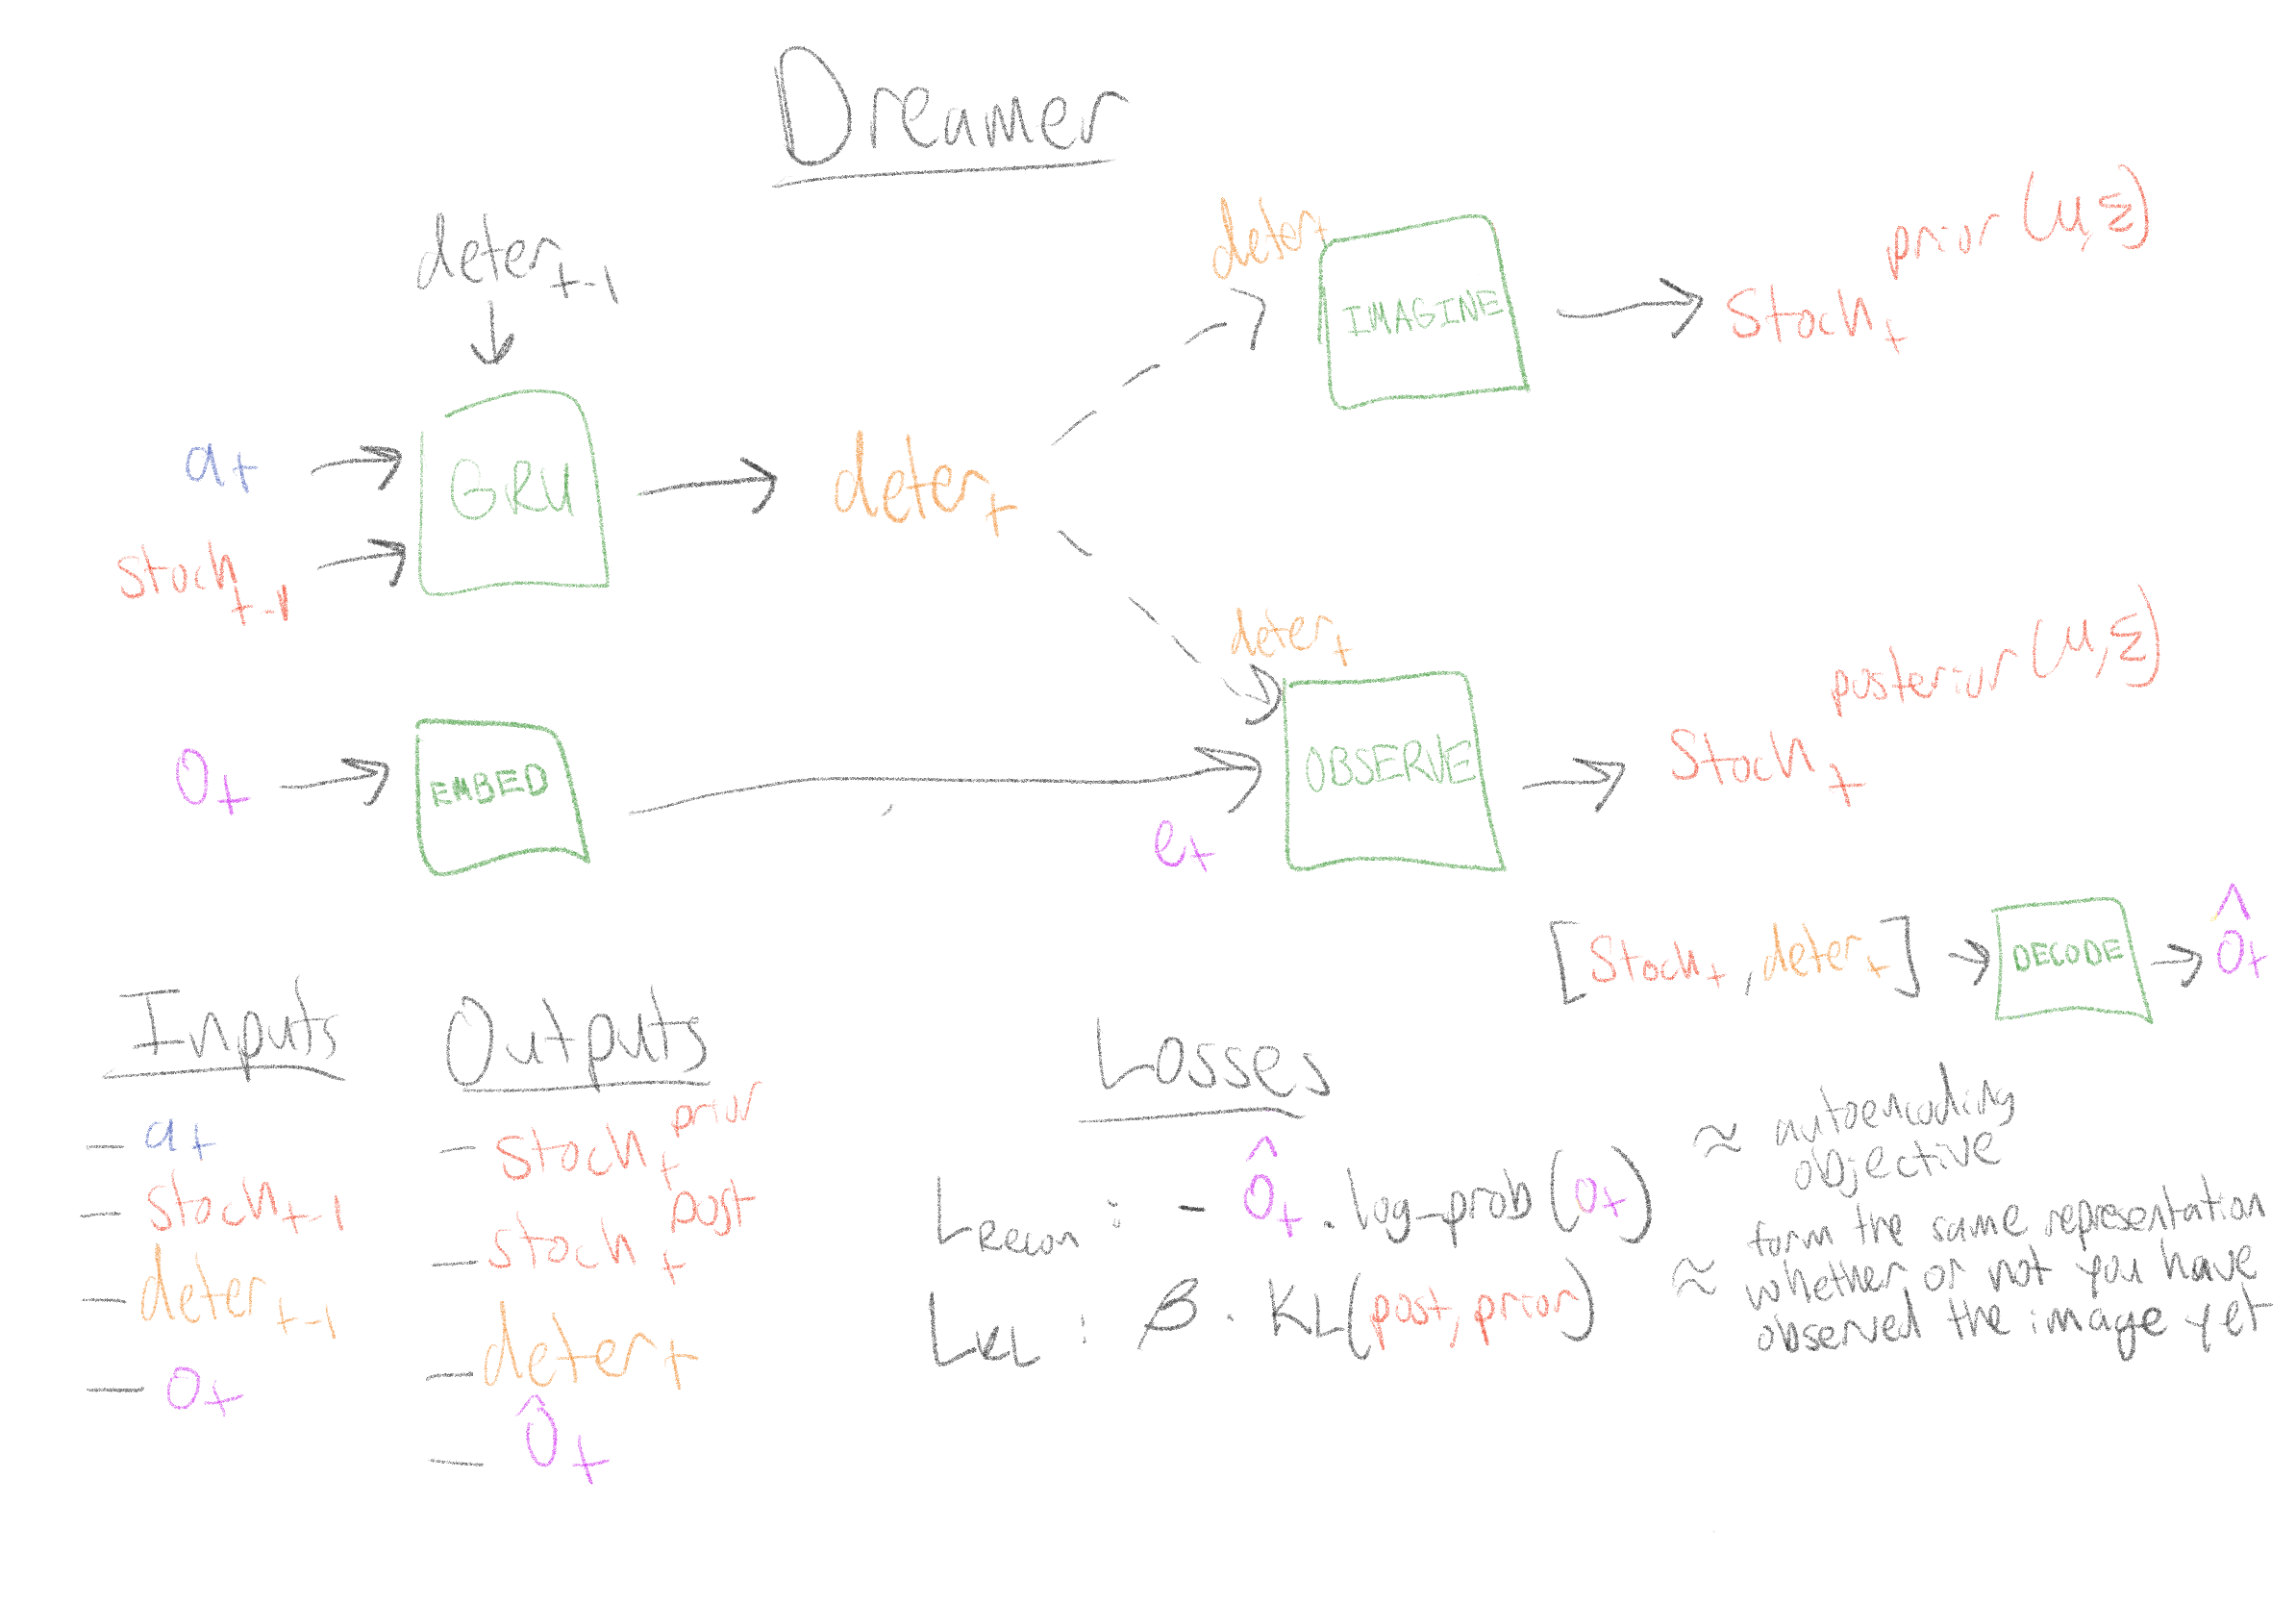 Dreamer
deter_t-1
a_t
stoch_t-1
GRU
deter_t
deter_t
IMAGINE
stoch_t prior (μ, Σ)
o_t
EMBED
e_t
deter_t
OBSERVE
stoch_t posterior (μ, Σ)
[stoch_t, deter_t]
DECODE
ô_t
Inputs
- a_t
- stoch_t-1
- deter_t-1
- o_t
Outputs
- stoch_t prior
- stoch_t post
- deter_t
- ô_t
Losses
L_Recon : - ô_t.log_prob(o_t)
≈ autoencoding
objective
L_KL : β · KL(post, prior)
≈ form the same representation
whether or not you have
observed the image yet